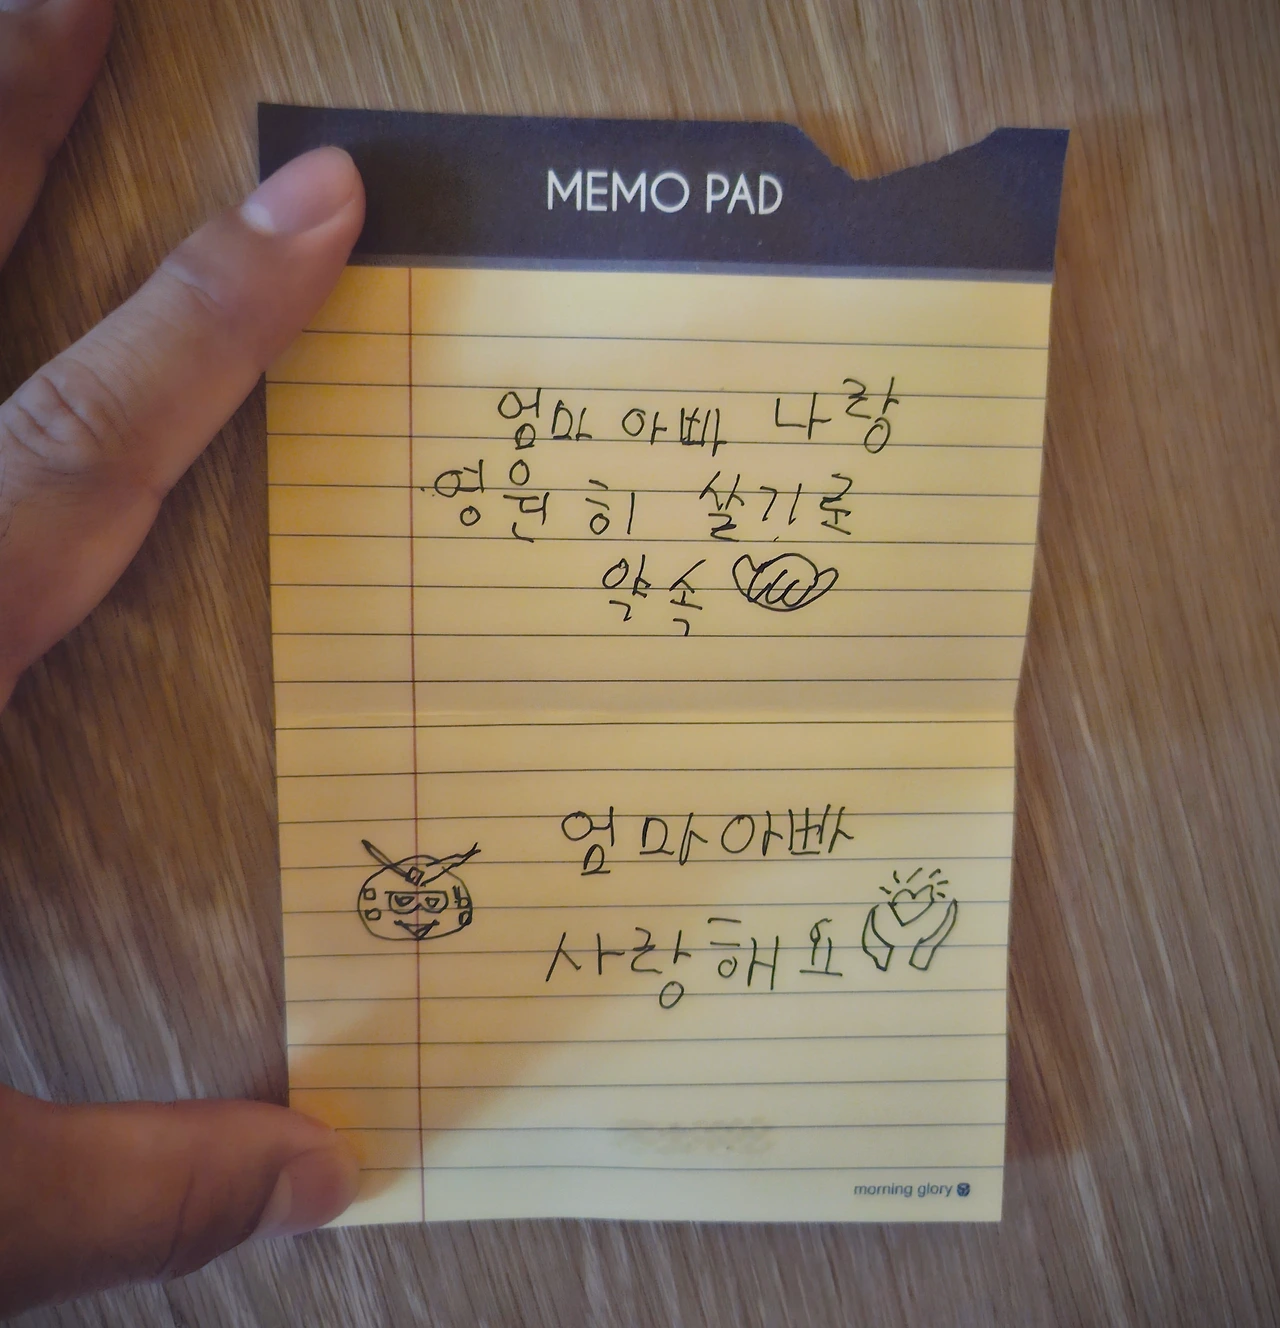 MEMO PAD
엄마 아빠 나랑
영원히 살기로
약속
엄마 아빠
사랑해요
morning glory